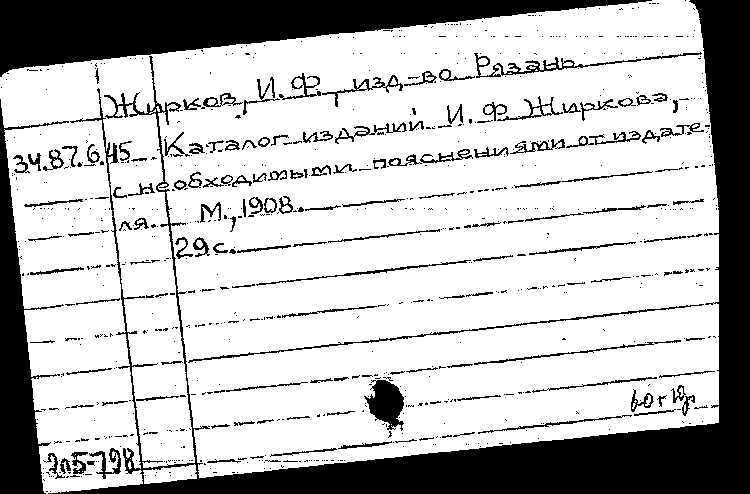 Жирков, И. Ф., изд-во. Рязань.
34.87.6.45 Каталог изданий И. Ф. Жиркова,
с необходимыми пояснениями от издате-
ля. М., 1908.
29 с.